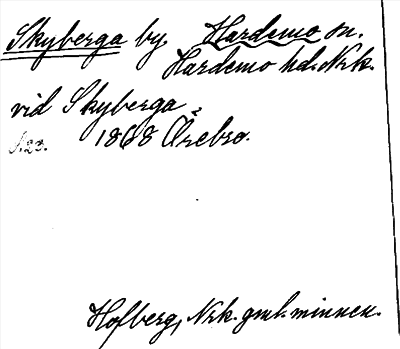 Skyberga by, Hardemo sn.
Hardemo hd. Nrk.
vid Skyberga
s. 23. 1868 Örebro.
Hofberg, Nrk. gml. minnen.